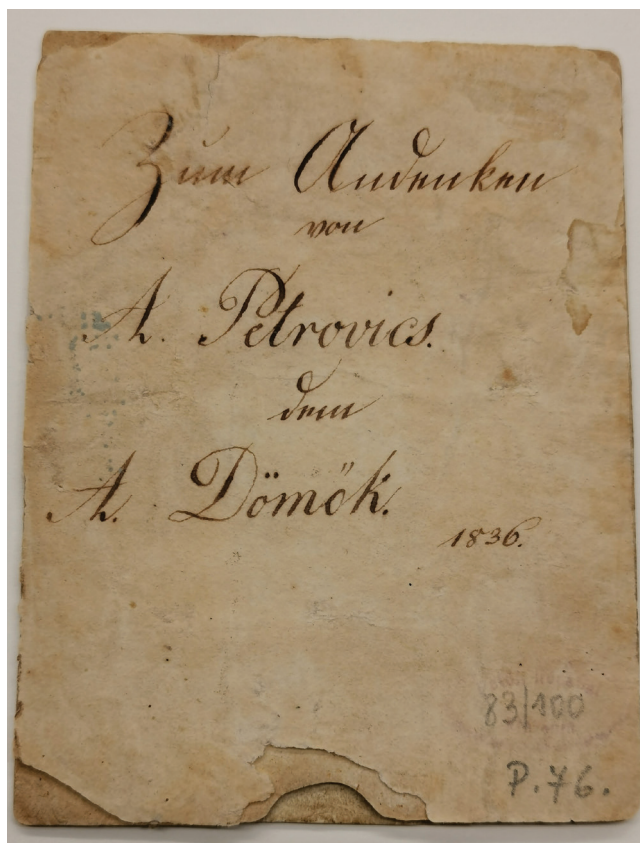 Zum Andenken
von
A. Petrovics.
dem
A. Dömők.
1836.
83/100
P.76.